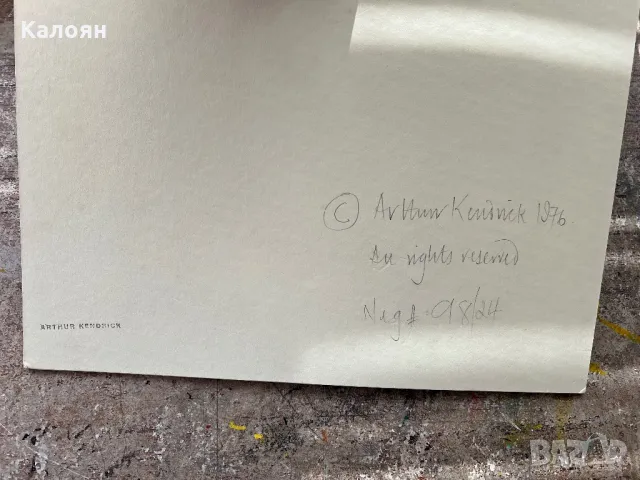 Калоян
© Arthur Kendrick 1976
All rights reserved
Neg #: 98/24
ARTHUR KENDRICK
BAZAR